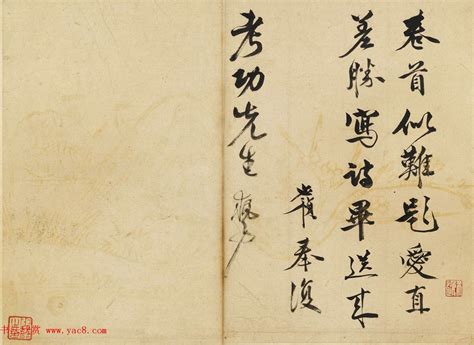 卷首似難題愛直
差勝寫詩畢送來
奉復
考功先生
书法欣赏 www.yac8.com